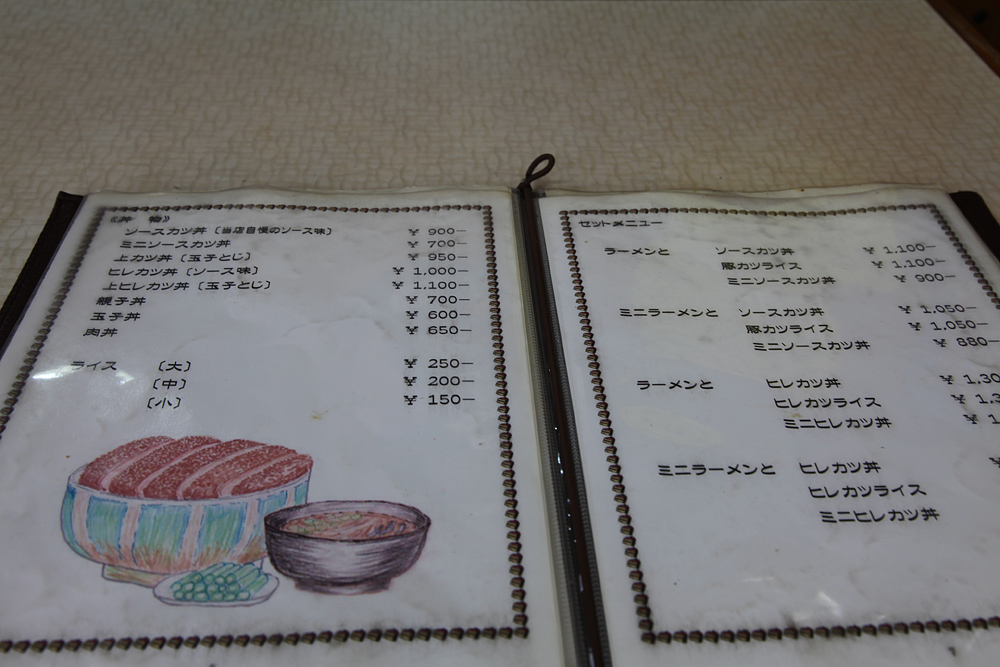 《丼 物》
ソースカツ丼〔当店自慢のソース味〕 ¥ 900−
ミニソースカツ丼 ¥ 700−
上カツ丼〔玉子とじ〕 ¥ 950−
ヒレカツ丼〔ソース味〕 ¥ 1,000−
上ヒレカツ丼〔玉子とじ〕 ¥ 1,100−
親子丼 ¥ 700−
玉子丼 ¥ 600−
肉丼 ¥ 650−
ライス 〔大〕 ¥ 250−
〔中〕 ¥ 200−
〔小〕 ¥ 150−
セットメニュー
ラーメンと ソースカツ丼 ¥ 1,100−
豚カツライス ¥ 1,100−
ミニソースカツ丼 ¥ 900−
ミニラーメンと ソースカツ丼 ¥ 1,050−
豚カツライス ¥ 1,050−
ミニソースカツ丼 ¥ 880−
ラーメンと ヒレカツ丼 ¥ 1,30
ヒレカツライス ¥ 1,3
ミニヒレカツ丼 ¥ 1
ミニラーメンと ヒレカツ丼 ¥
ヒレカツライス
ミニヒレカツ丼